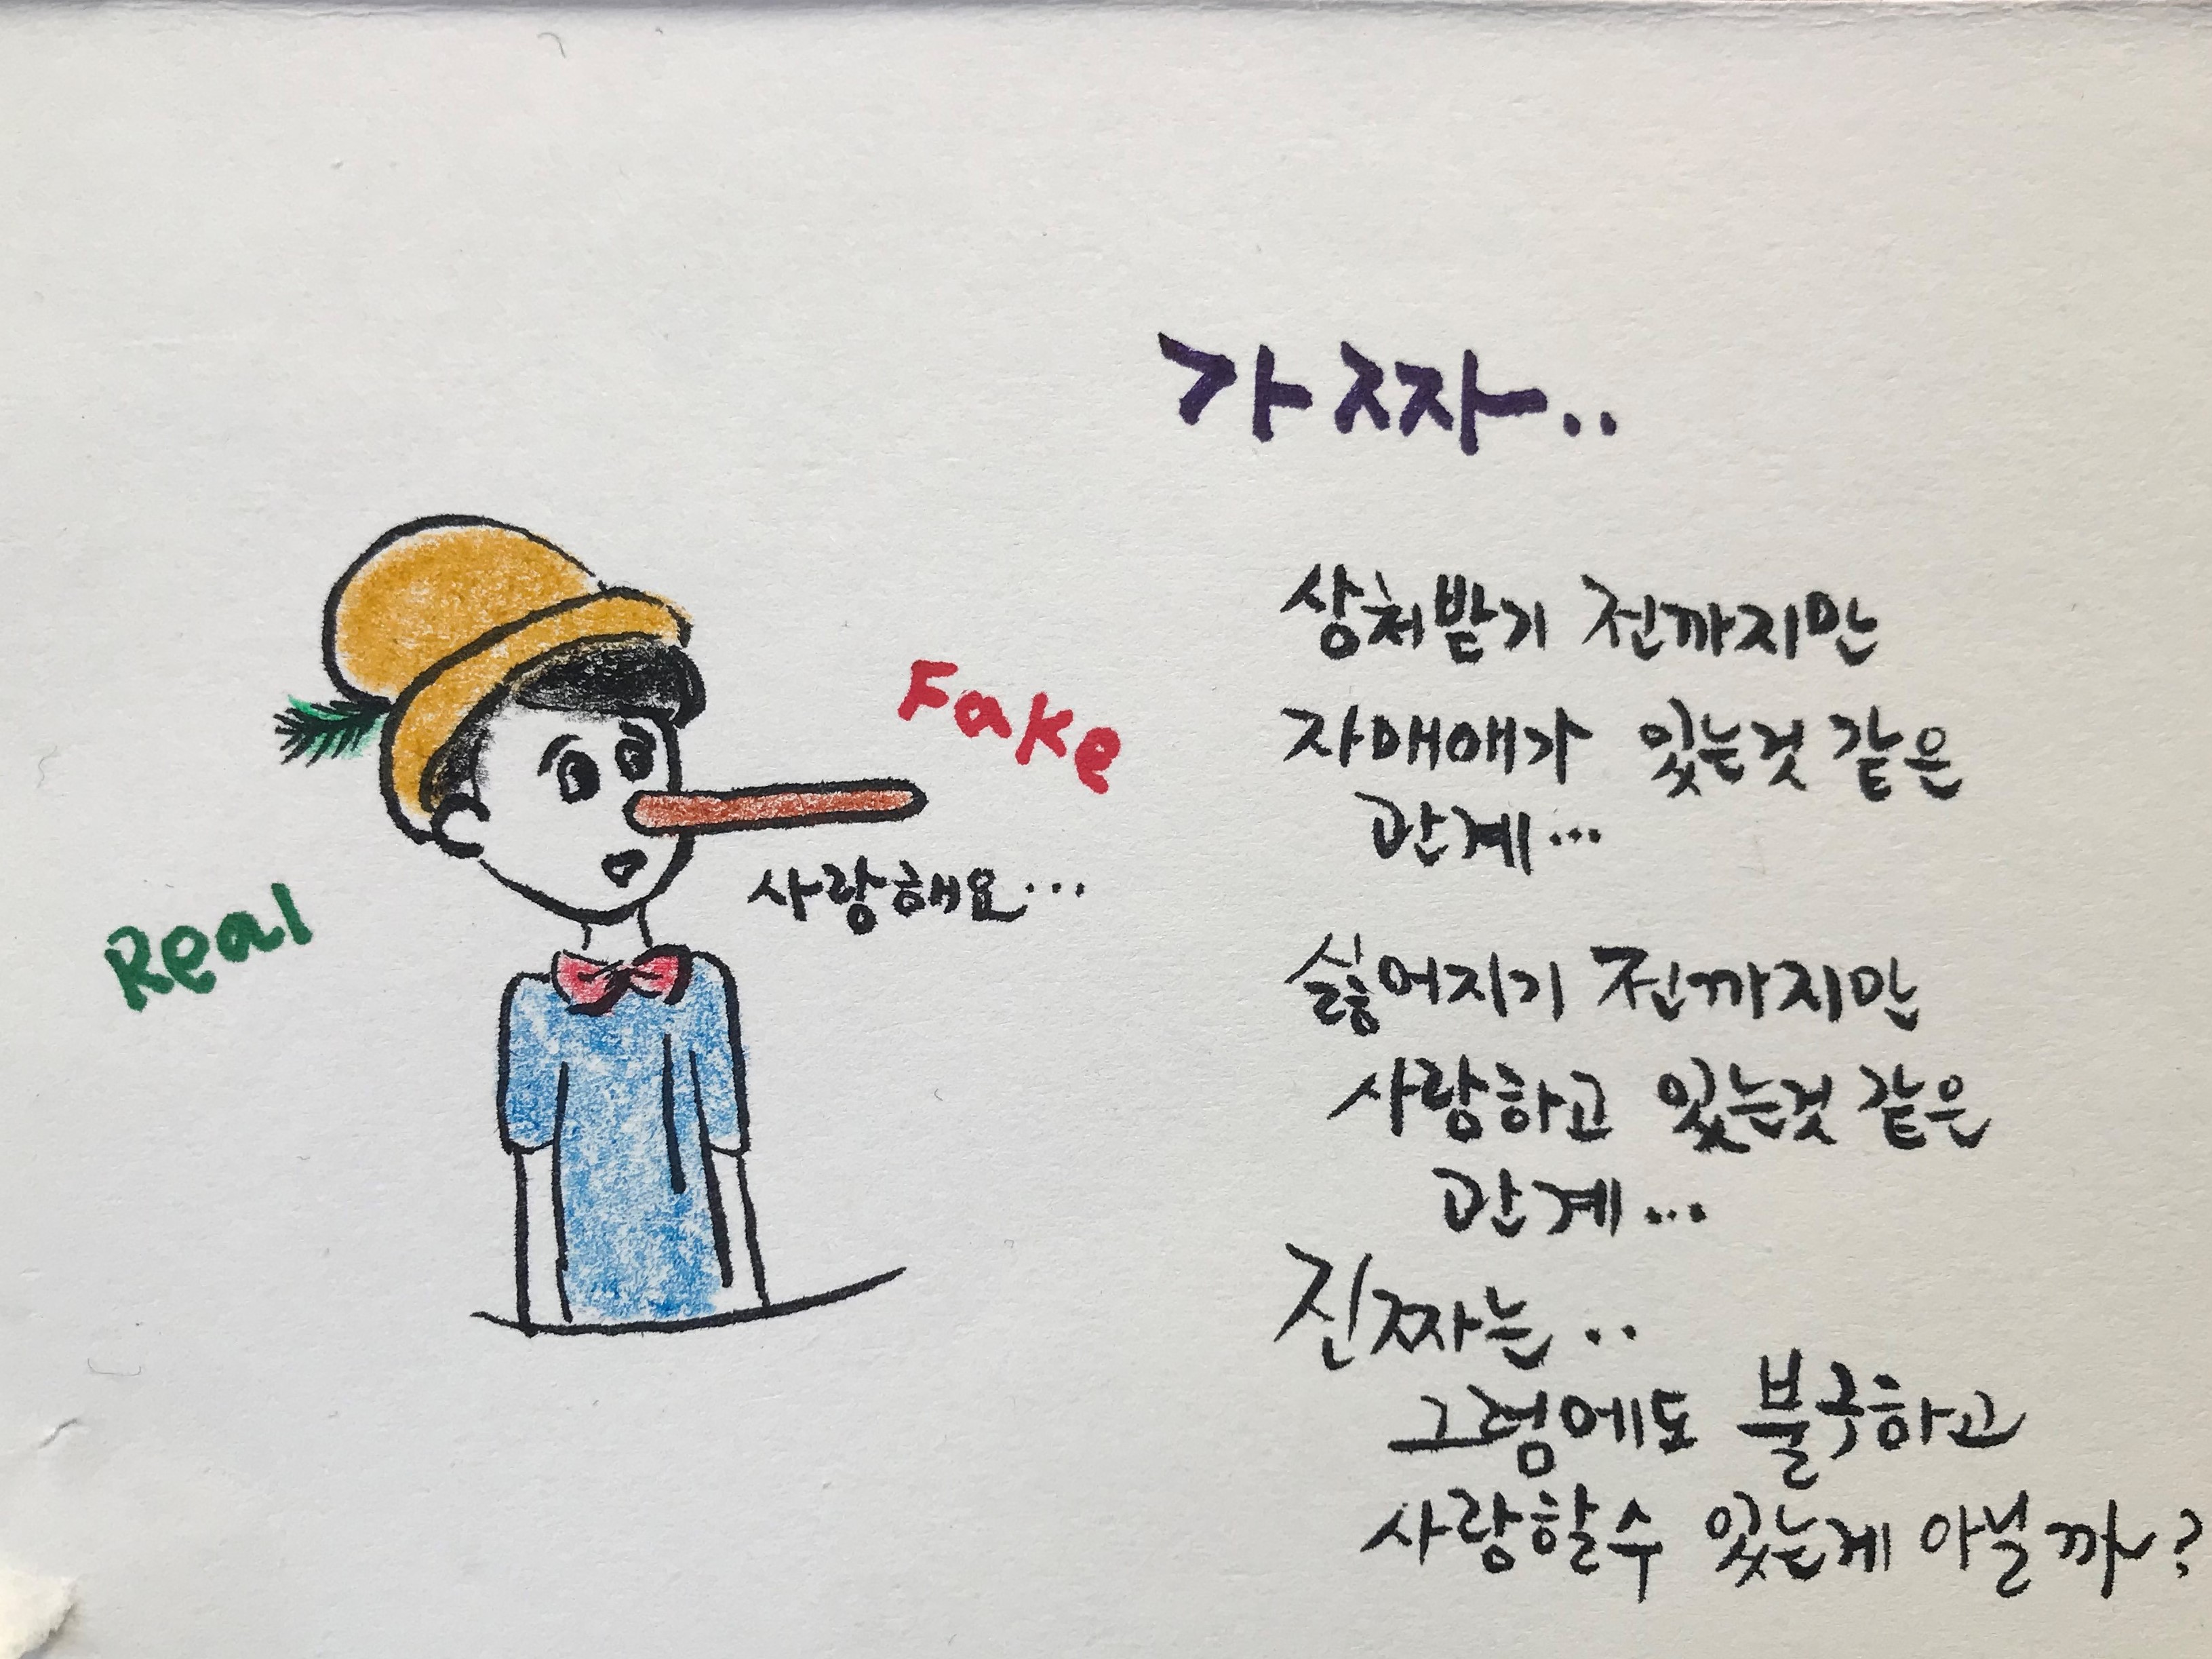 가짜..
Fake
Real
사랑해요...
상처받기 전까지만
자매애가 있는것 같은
관계...
싫어지기 전까지만
사랑하고 있는것 같은
관계...
진짜는..
그럼에도 불구하고
사랑할수 있는게 아닐까?